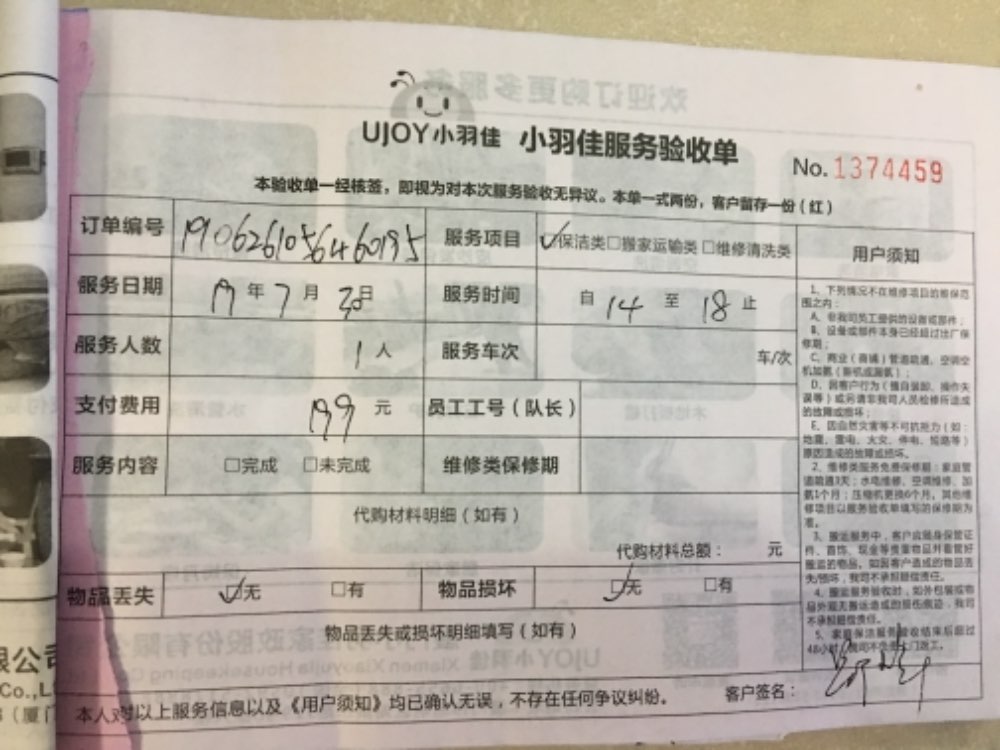 UJOY小羽佳 小羽佳服务验收单
No. 1374459
本验收单一经核签，即视为对本次服务验收无异议。本单一式两份，客户留存一份（红）
订单编号 服务项目 ☑保洁类□搬家运输类□维修清洗类 用户须知
服务日期 19年7月30日 服务时间 自14至18止
服务人数 1人 服务车次 车/次
支付费用 199元 员工工号（队长）
服务内容 □完成 □未完成 维修类保修期
代购材料明细（如有）
代购材料总额： 元
物品丢失 ☑无 □有 物品损坏 ☑无 □有
物品丢失或损坏明细填写（如有）
本人对以上服务信息以及《用户须知》均已确认无误，不存在任何争议纠纷。 客户签名：
1、下列情况不在维修项目的维保范
围之内：
A、非我司员工提供的设备或部件；
B、设备或部件本身已经超过出厂保
修期；
C、商业（商铺）管道疏通、空调空
机加氨（新机或漏氨）；
D、因客户行为（擅自装卸、操作失
误等）或另请非我司人员检修所造成
的故障或损坏；
E、因自然灾害等不可抗拒力（如：
地震、雷电、火灾、停电、短路等）
原因造成的故障或损坏。
2、维修类服务免费保修期：家庭管
道疏通3天；水电维修、空调维修、加
氨1个月；压缩机更换6个月。其他维
修项目以服务验收单填写的保修期为
准。
3、搬运服务中，客户应随身保管证
件、首饰、现金等贵重物品并看管好
搬运的物品，如因客户造成的物品丢
失/损坏，我司不承担赔偿责任。
4、搬运服务验收时，如外包装或物
品外观无搬运造成的损伤痕迹，我司
不承担赔偿责任。
5、家庭保洁服务验收结束后超过
48小时，我司不负责上门返工。
限公司
Co.,L
（厦门